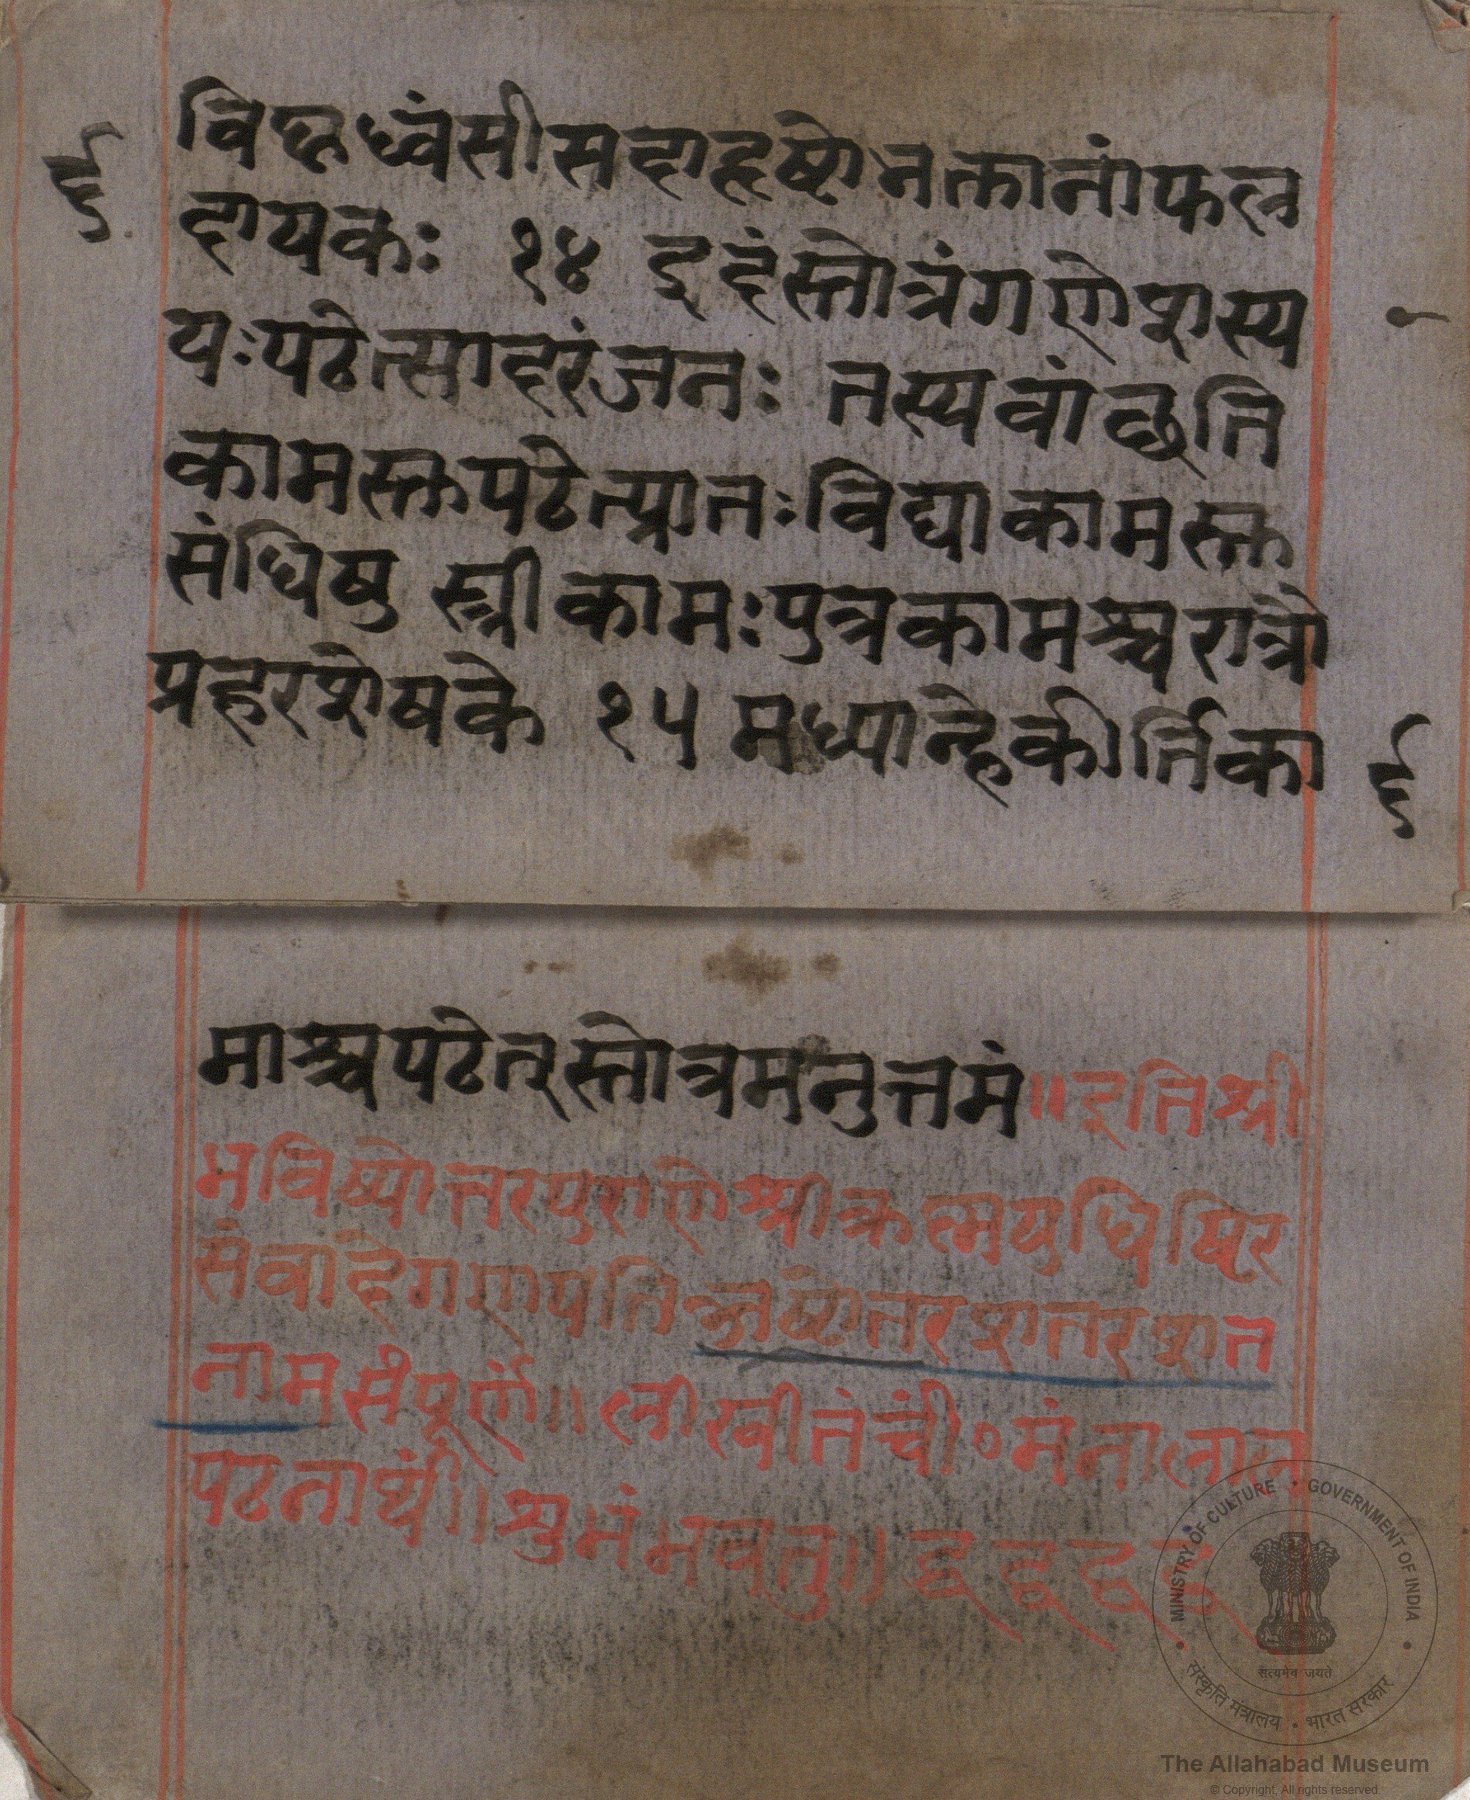 विघ्नध्वंसी सदा हृष्टो भक्तानां फल
६
दायकः १४ इदं स्तोत्रं गणेशस्य
यः पठेत्सादरं जनः तस्य वांछति
कामस्तु पठेत्प्रातः विद्याकामस्तु
संधिषु स्त्रीकामः पुत्रकामश्च रात्रौ
प्रहरशेषके १५ मध्यान्हे कीर्तिका
६
माश्च पठेत् स्तोत्रमनुत्तमं ॥ इति श्री
भविष्योत्तरपुराणे श्रीक्रस्मयुधिष्ठिर
संवादे गणपति अष्टोत्तरशतरशत
नाम संपूर्णं ॥ लीखीतं चीं० मंनालाल
पठनार्थं ॥ शुभं भवतु ॥
MINISTRY OF CULTURE • GOVERNMENT OF INDIA
सत्यमेव जयते
संस्कृति मंत्रालय • भारत सरकार
The Allahabad Museum
© Copyright, All rights reserved.